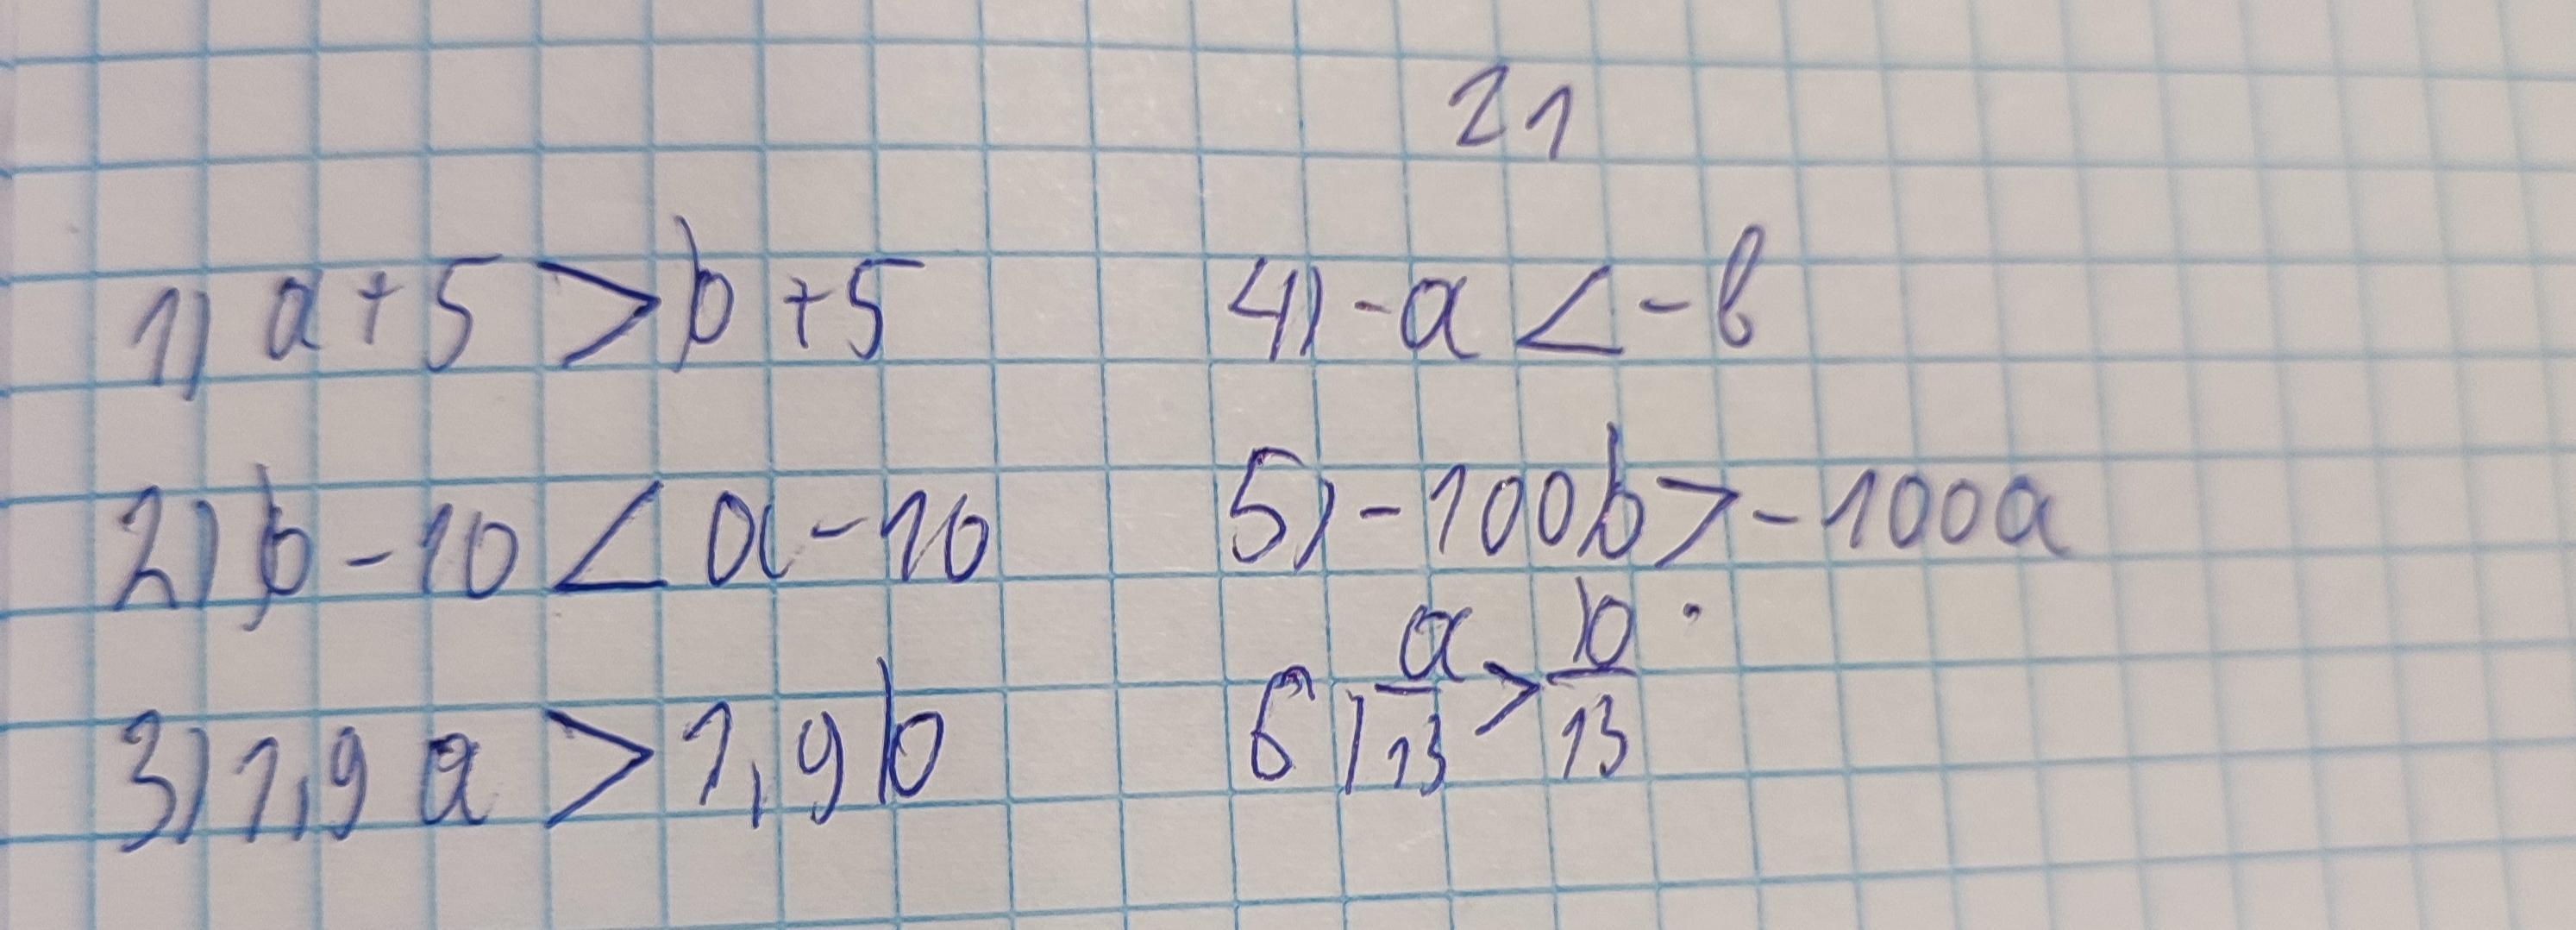 21
1) a + 5 > b + 5
2) b - 10 < a - 10
3) 1,9 a > 1,9 b
4) -a < -b
5) -100b > -100a
6) a/13 > b/13